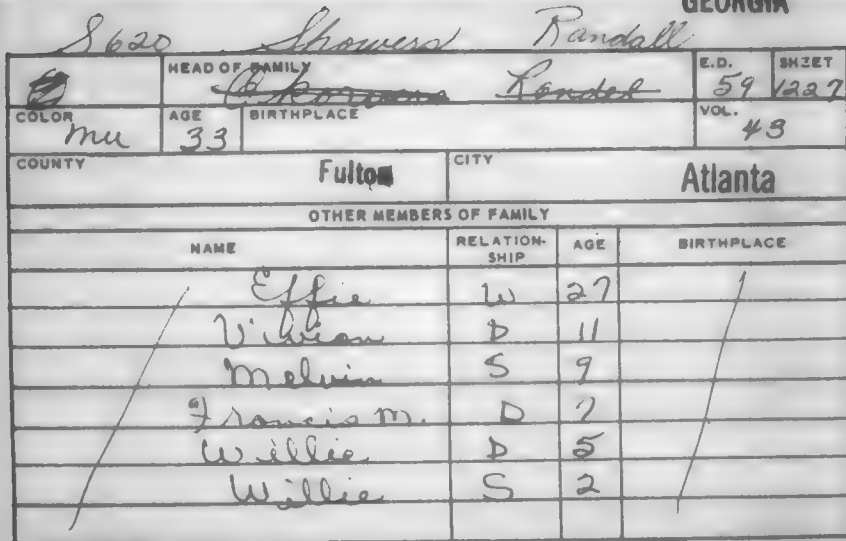 GEORGIA
S620 Showers Randall
HEAD OF FAMILY Randel E.D. 59 SHEET 1227
COLOR Mu AGE 33 BIRTHPLACE VOL. 43
COUNTY Fulton CITY Atlanta
OTHER MEMBERS OF FAMILY
NAME RELATION-SHIP AGE BIRTHPLACE
Effie W 27
Vivian D 11
Melvin S 9
Francis M. D 7
Willie D 5
Willie S 2